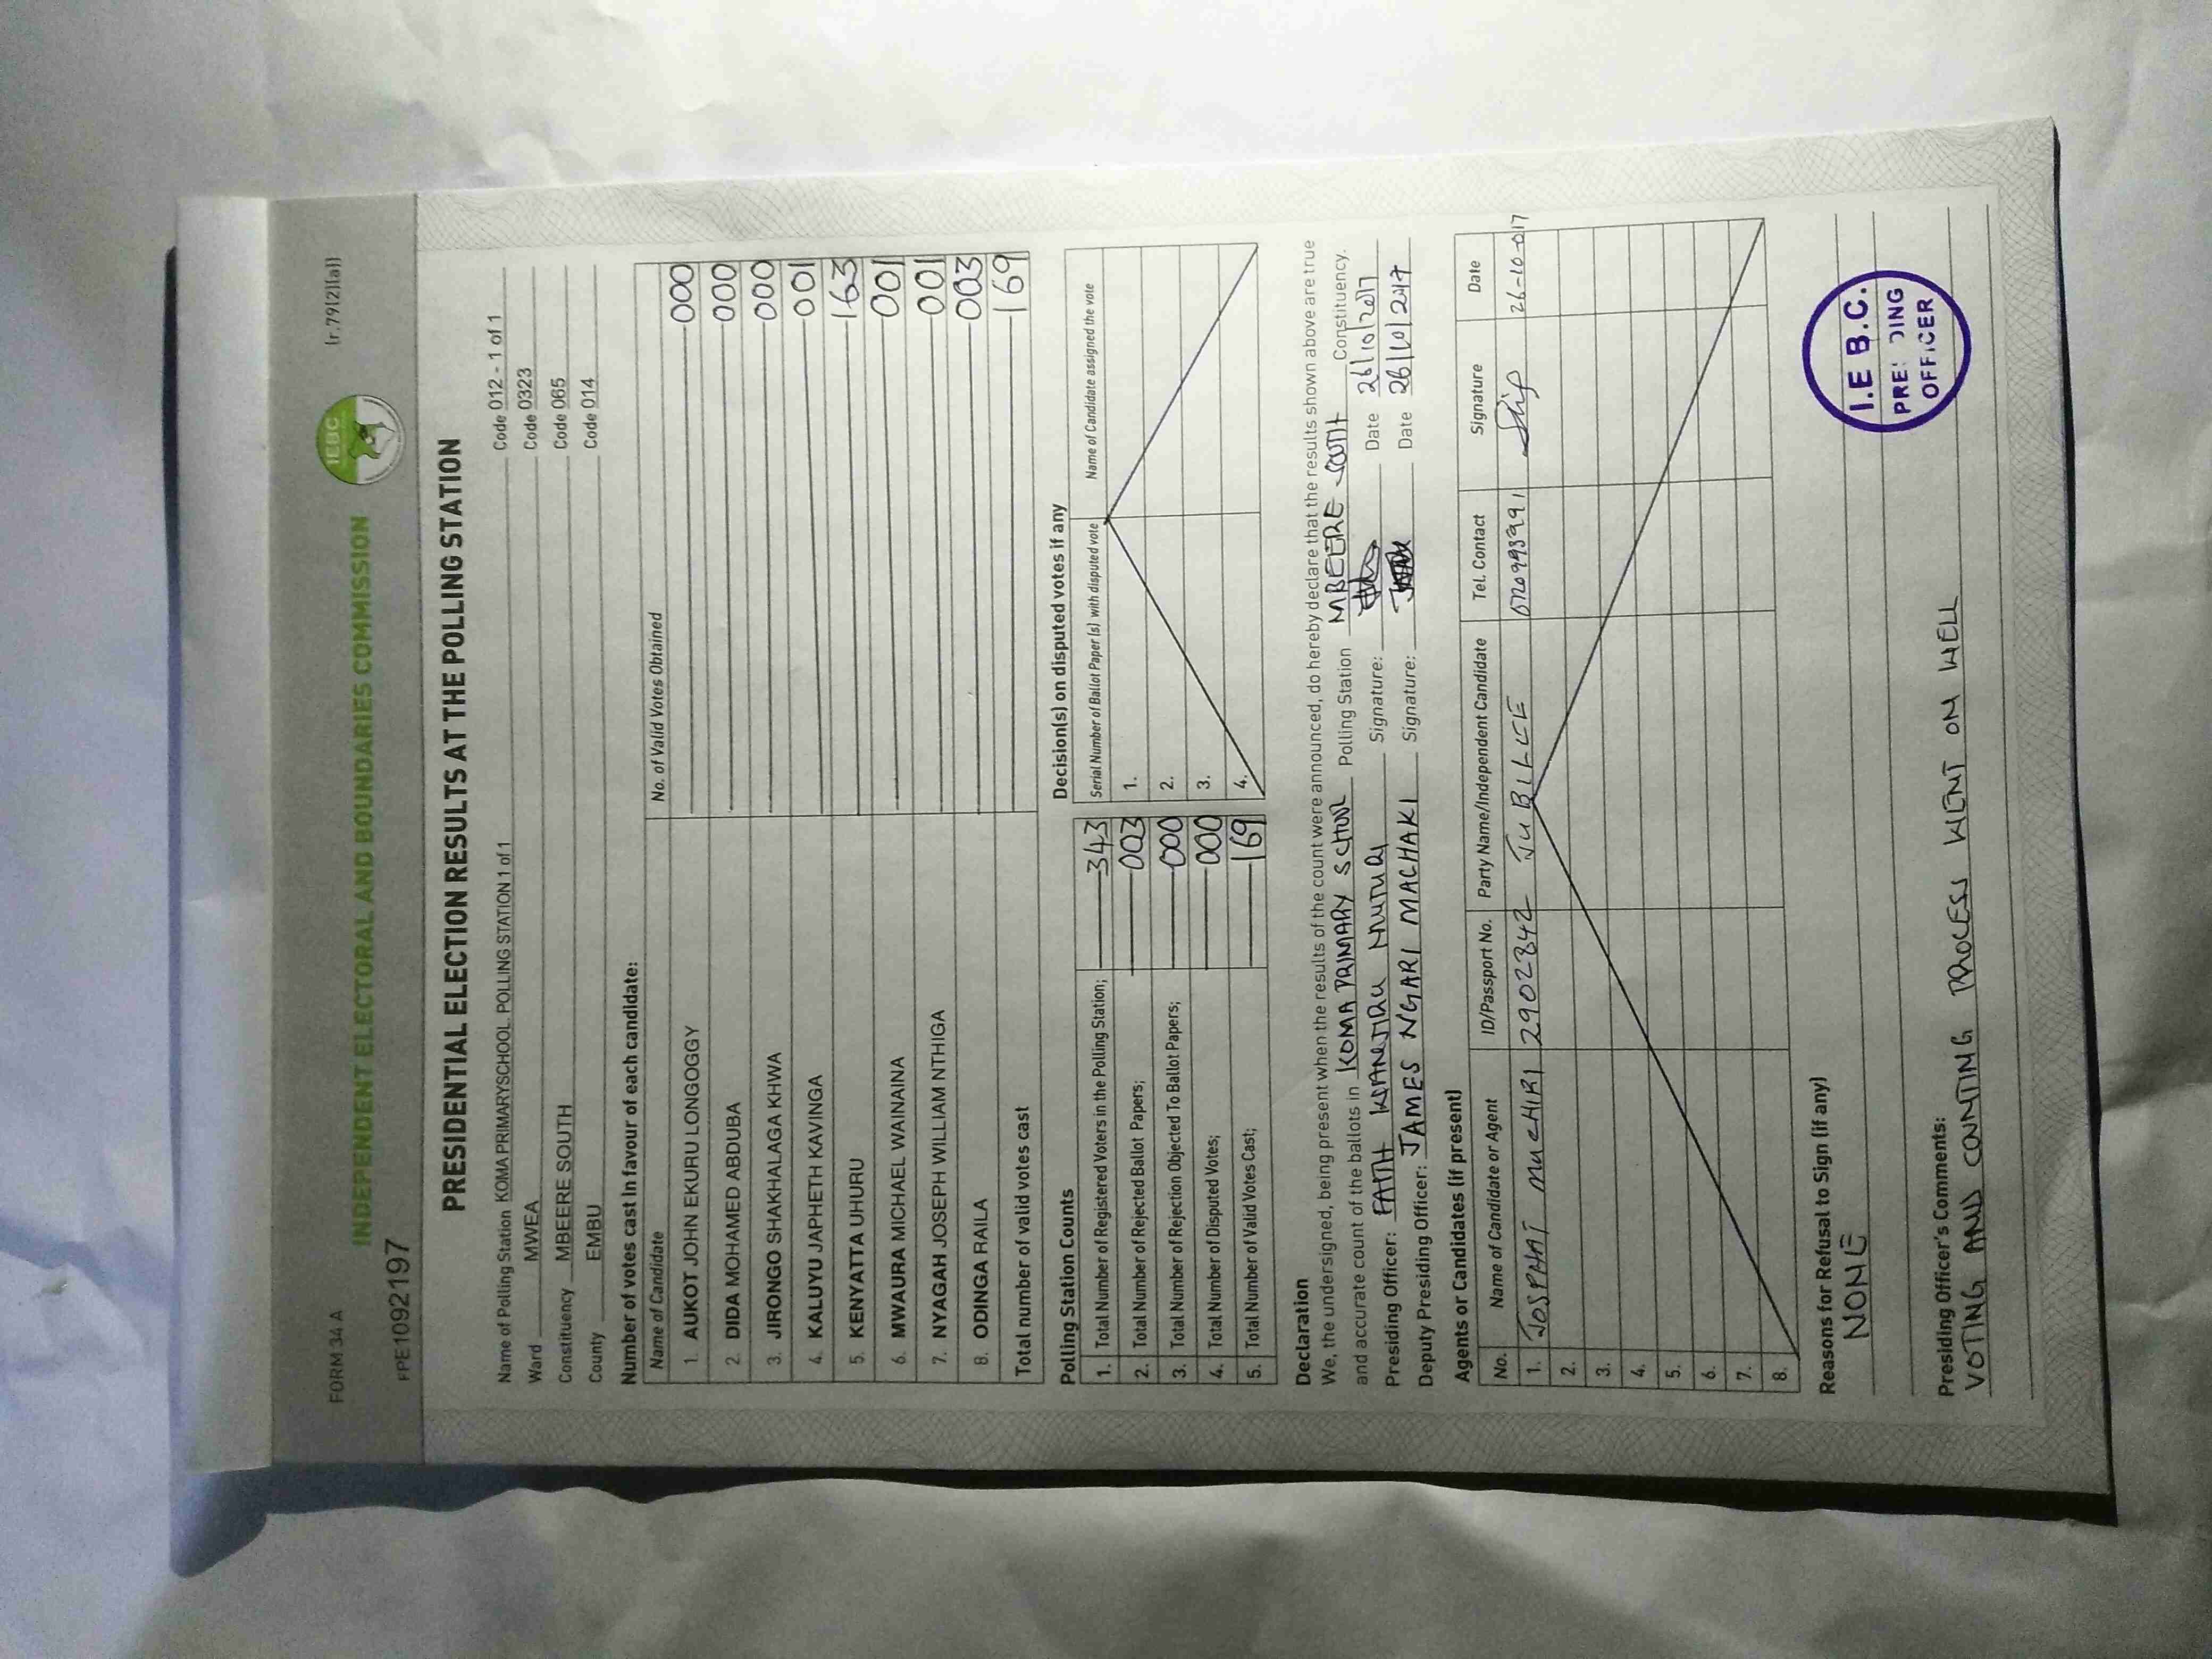 FORM 34 A
(r.79(2)(a))
IEBC
INDEPENDENT ELECTORAL AND BOUNDARIES COMMISSION
FPE1092197
PRESIDENTIAL ELECTION RESULTS AT THE POLLING STATION
Name of Polling Station KOMA PRIMARYSCHOOL. POLLING STATION 1 of 1 Code 012 - 1 of 1
Ward MWEA Code 0323
Constituency MBEERE SOUTH Code 065
County EMBU Code 014
Number of votes cast in favour of each candidate:
Name of Candidate No. of Valid Votes Obtained
1. AUKOT JOHN EKURU LONGOGGY 000
2. DIDA MOHAMED ABDUBA 000
3. JIRONGO SHAKHALAGA KHWA 000
4. KALUYU JAPHETH KAVINGA 001
5. KENYATTA UHURU 163
6. MWAURA MICHAEL WAINAINA 001
7. NYAGAH JOSEPH WILLIAM NTHIGA 001
8. ODINGA RAILA 003
Total number of valid votes cast 169
Polling Station Counts
1. Total Number of Registered Voters in the Polling Station; 343
2. Total Number of Rejected Ballot Papers; 003
3. Total Number of Rejection Objected To Ballot Papers; 000
4. Total Number of Disputed Votes; 000
5. Total Number of Valid Votes Cast; 169
Decision(s) on disputed votes if any
Serial Number of Ballot Paper (s) with disputed vote Name of Candidate assigned the vote
1.
2.
3.
4.
Declaration
We, the undersigned, being present when the results of the count were announced, do hereby declare that the results shown above are true
and accurate count of the ballots in KOMA PRIMARY SCHOOL Polling Station MBEERE SOUTH Constituency.
Presiding Officer: FAITH WANJIRU Signature: Date 26/10/2017
Deputy Presiding Officer: JAMES NGARI MACHAKI Signature: Date 26/10/2017
Agents or Candidates (if present)
No. Name of Candidate or Agent ID/Passport No. Party Name/Independent Candidate Tel. Contact Signature Date
1. JOSPHAT MUCHIRI 29023842 JUBILEE 0720998991 26-10-017
2.
3.
4.
5.
6.
7.
8.
Reasons for Refusal to Sign (if any)
NONE
Presiding Officer's Comments:
VOTING AND CONTING PROCESS WENT ON WELL
I.E B.C.
OFFICER